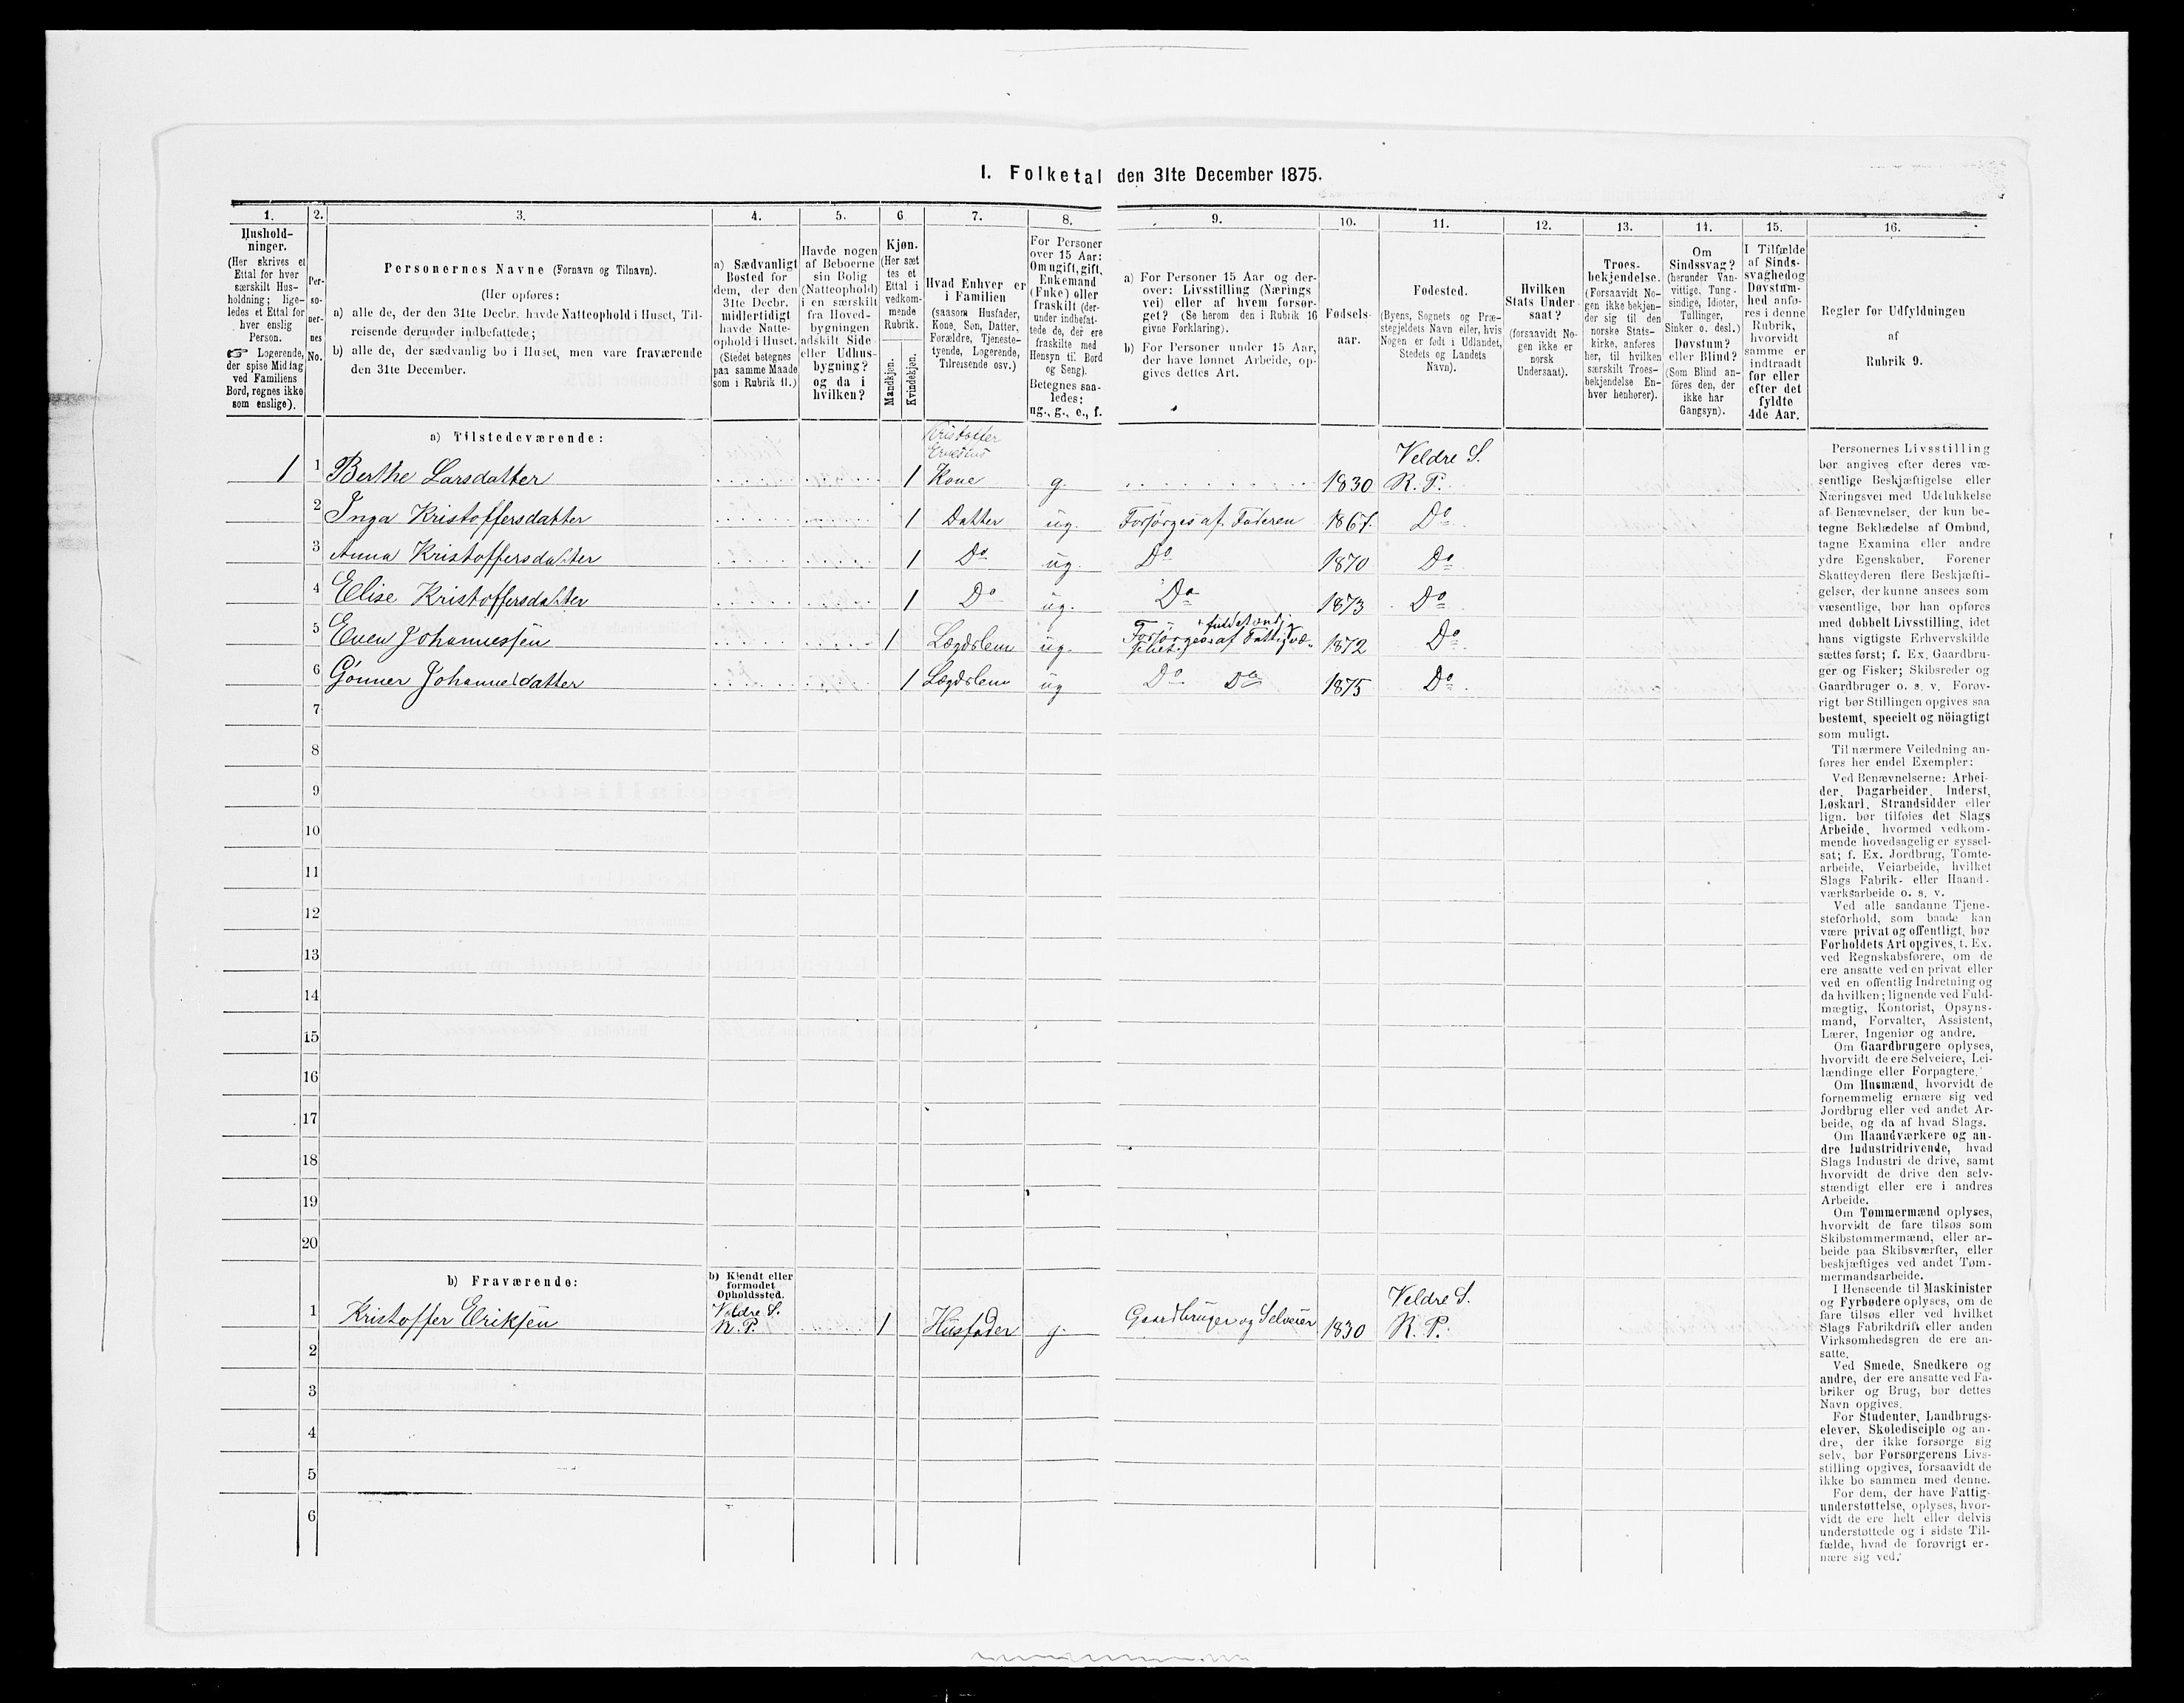 I. Folketal den 31te December 1875.
1. 2. 3. 4. 5. 6 7. 8. 9. 10. 11. 12. 13. 14. 15. 16.
Hushold-
ninger.
(Her skrives et
Ettal for hver
særskilt Hus-
holdning; lige-
ledes et Ettal for
hver enslig
Person.
☞ Logerende,
der spise Middag
ved Familiens
Bord, regnes ikke
som enslige).
Per-
so-
ner-
nes
No.
Personernes Navne (Fornavn og Tilnavn).
(Her opføres:
a) alle de, der den 31te Decbr. havde Natteophold i Huset, Til-
reisende derunder indbefattede;
b) alle de, der sædvanlig bo i Huset, men vare fraværende
den 31te December.
a) Sædvanligt
Bosted for
dem, der den
31te Decbr.
midlertidigt
havde Natte-
ophold i Huset.
(Stedet betegnes
paa samme Maade
som i Rubrik 11.)
Havde nogen
af Beboerne
sin Bolig
(Natteophold)
i en særskilt
fra Hoved-
bygningen
adskilt Side-
eller Udhus-
bygning?
og da i
hvilken?
Kjøn.
(Her sæt
tes et
Ettal i
vedkom-
mende
Rubrik.
Mandkjøn.
Kvindekjøn.
Hvad Enhver er
i Familien
(saasom Husfader,
Kone, Søn, Datter,
Forældre, Tjeneste-
tyende, Logerende,
Tilreisende osv.)
For Personer
over 15 Aar:
Om ugift, gift,
Enkemand
(Enke) eller
fraskilt (der-
under indbefat-
tede de, der ere
fraskilte med
Hensyn til Bord
og Seng).
Betegnes saa-
ledes:
ug., g., e., f.
a) For Personer 15 Aar og der-
over: Livsstilling (Nærings
vei) eller af hvem forsør-
get? (Se herom den i Rubrik 16
givne Forklaring).
b) For Personer under 15 Aar,
der have lønnet Arbeide, op-
gives dettes Art.
Fødsels-
aar.
Fødested.
(Byens, Sognets og Præ-
stegjeldets Navn eller, hvis
Nogen er født i Udlandet,
Stedets og Landets
Navn).
Hvilken
Stats Under-
saat?
(forsaavidt No-
gen ikke er
norsk
Undersaat).
Troes-
bekjendelse.
(Forsaavidt No-
gen ikke bekjen-
der sig til den
norske Stats-
kirke, anføres
her, til hvilken
særskilt Troes-
bekjendelse En-
hver henhører).
Om
Sindssvag?
(herunder Van-
vittige, Tung-
sindige, Idioter,
Tullinger,
Sinker o. desl.)
Døvstum?
eller Blind?
(Som Blind an-
føres den, der
ikke har
Gangsyn).
I Tilfælde
af Sinds-
svaghed og
Døvstum-
hed anfø-
res i denne
Rubrik,
hvorvidt
samme er
indtraadt
før eller
efter det
fyldte
4de Aar.
Regler for Udfyldningen
af
Rubrik 9.
a) Tilstedeværende:
Kristoffer
Veldre S.
1 1 Berthe Larsdatter 1 Kone g. 1830 R. P.
2 Inga Kristoffersdatter 1 Datter ug. Forsørges af Faderen 1867. Do
3 Anna Kristoffersdatter 1 Do ug. Do 1870 Do
4 Elise Kristoffersdatter 1 Do ug. Do 1873 Do
fuldstændig
5 Even Johannessen 1 Lægdslem ug. Forsørges af Fattigvæ- 1872 Do
6 Gunner Johannesdatter 1 Lægdslem ug Do Do 1875 Do
7
8
9
10
11
12
13
14
15
16
17
18
19
20
b) Fraværende:
b) Kjendt eller
formodet
Opholdssted.
Veldre S. Veldre S.
1 Kristoffer Eriksen R. P. 1 Husfader g. Gaardbruger og Selveier 1830 R. P.
2
3
4
5
6
Personernes Livsstilling
bør angives efter deres væ-
sentlige Beskjæftigelse eller
Næringsvei med Udelukkelse
af Benævnelser, der kun be-
tegne Beklædelse af Ombud,
tagne Examina eller andre
ydre Egenskaber. Forener
Skatteyderen flere Beskjæfti-
gelser, der kunne ansees som
væsentlige, bør han opføres
med dobbelt Livsstilling, idet
hans vigtigste Erhvervskilde
sættes først; f. Ex. Gaardbru-
ger og Fisker; Skibsreder og
Gaardbruger o. s. v. Forøv-
rigt bør Stillingen opgives saa
bestemt, specielt og nöiagtigt
som muligt.
Til nærmere Veiledning an-
føres her endel Exempler:
Ved Benævnelserne: Arbei-
der, Dagarbeider, Inderst,
Løskarl, Strandsidder eller
lign. bør tilføies det Slags
Arbeide, hvormed vedkom-
mende hovedsagelig er syssel-
sat; f. Ex. Jordbrug, Tomte-
arbeide, Veiarbeide, hvilket
Slags Fabrik- eller Haand-
værksarbeide o. s. v.
Ved alle saadanne Tjene-
steforhold, som baade kan
være privat og offentligt, bør
Forholdets Art opgives, t. Ex.
ved Regnskabsførere, om de
ere ansatte ved en privat eller
ved en offentlig Indretning og
da hvilken; lignende ved Fuld-
mægtig, Kontorist, Opsyns-
mand, Forvalter, Assistent,
Lærer, Ingeniør og andre.
Om Gaardbrugere oplyses,
hvorvidt de ere Selveiere, Lei-
lændinge eller Forpagtere.
Om Husmænd, hvorvidt de
fornemmelig ernære sig ved
Jordbrug eller ved andet Ar-
beide, og da af hvad Slags.
Om Haandværkere og an-
dre Industridrivende, hvad
Slags Industri de drive, samt
hvorvidt de drive den selv-
stændigt eller ere i andres
Arbeide.
Om Tømmermænd oplyses,
hvorvidt de fare tilsøs som
Skibstømmermænd, eller ar-
beide paa Skibsværfter, eller
beskjæftiges ved andet Tøm-
mermandsarbeide.
I Henseende til Maskinister
og Fyrbødere oplyses, om de
fare tilsøs eller ved hvilket
Slags Fabrikdrift eller anden
Virksomhedsgren de ere an-
satte.
Ved Smede, Snedkere og
andre, der ere ansatte ved Fa-
briker og Brug, bør dettes
Navn opgives.
For Studenter, Landbrugs-
elever, Skoledisciple og an-
dre, der ikke forsørge sig
selv, bør Forsørgerens Livs-
stilling opgives, forsaavidt de
ikke bo sammen med denne.
For dem, der have Fattig-
understøttelse, oplyses, hvor-
vidt de ere helt eller delvis
understøttede og i sidste Til-
fælde, hvad de forøvrigt er-
nære sig ved.